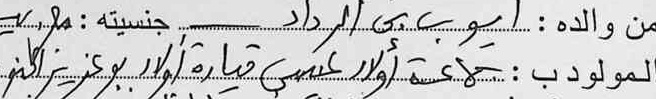 من والده : ايوب بن الرداد جنسيته : مغربية
المولود ب : جماعة أولاد عيسى قيادة أولاد بوعزيز